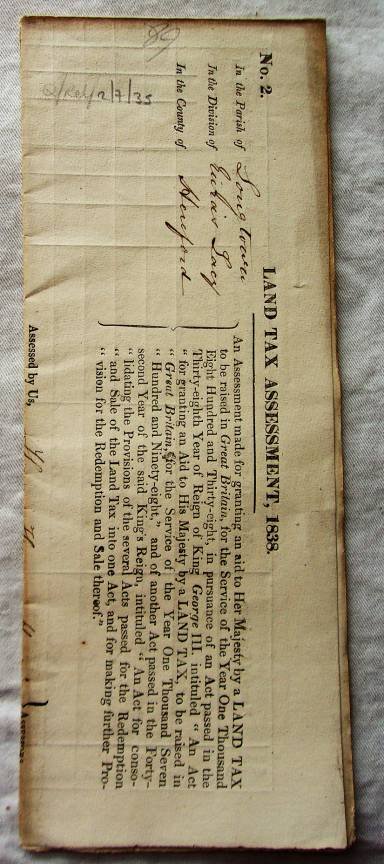 89
2/7/35
No. 2.
LAND TAX ASSESSMENT, 1838.
In the Parish of Longtown
In the Division of Ewias Lacy
In the County of Hereford
An Assessment made for granting an aid to Her Majesty by a LAND TAX
to be raised in Great Britain, for the Service of the Year One Thousand
Eight Hundred and Thirty-eight, in pursuance of an Act passed in the
Thirty-eighth Year of Reign of King George III. intituled "An Act
"for granting an Aid to His Majesty by a LAND TAX, to be raised in
"Great Britain, for the Service of the Year One Thousand Seven
"Hundred and Ninety-eight," and of another Act passed in the Forty-
second Year of the said King's Reign, intituled "An Act for conso-
"lidating the Provisions of the several Acts passed for the Redemption
"and Sale of the Land Tax into one Act, and for making further Pro-
"vision for the Redemption and Sale thereof."
Assessed by Us,